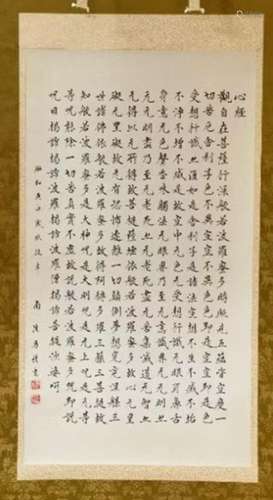 心經
觀自在菩薩行深般若波羅蜜多時照見五蘊皆空度一
切苦厄舍利子色不異空空不異色色即是空空即是色
受想行識亦復如是舍利子是諸法空相不生不滅不垢
不淨不增不減是故空中无色无受想行識无眼耳鼻舌
身意无色聲香味觸法无眼界乃至无意識界无无明亦
无无明盡乃至无老死亦无老死盡无苦集滅道无智亦
无得以无所得故菩提薩埵依般若波羅蜜多故心无罣
礙无罣礙故无有恐怖遠離一切顛倒夢想究竟涅槃三
世諸佛依般若波羅蜜多故得阿耨多羅三藐三菩提故
知般若波羅蜜多是大神咒是大明咒是无上咒是无等
等咒能除一切苦真實不虛故說般若波羅蜜多咒即說
咒曰揭諦揭諦波羅揭諦波羅僧揭諦菩提薩婆訶